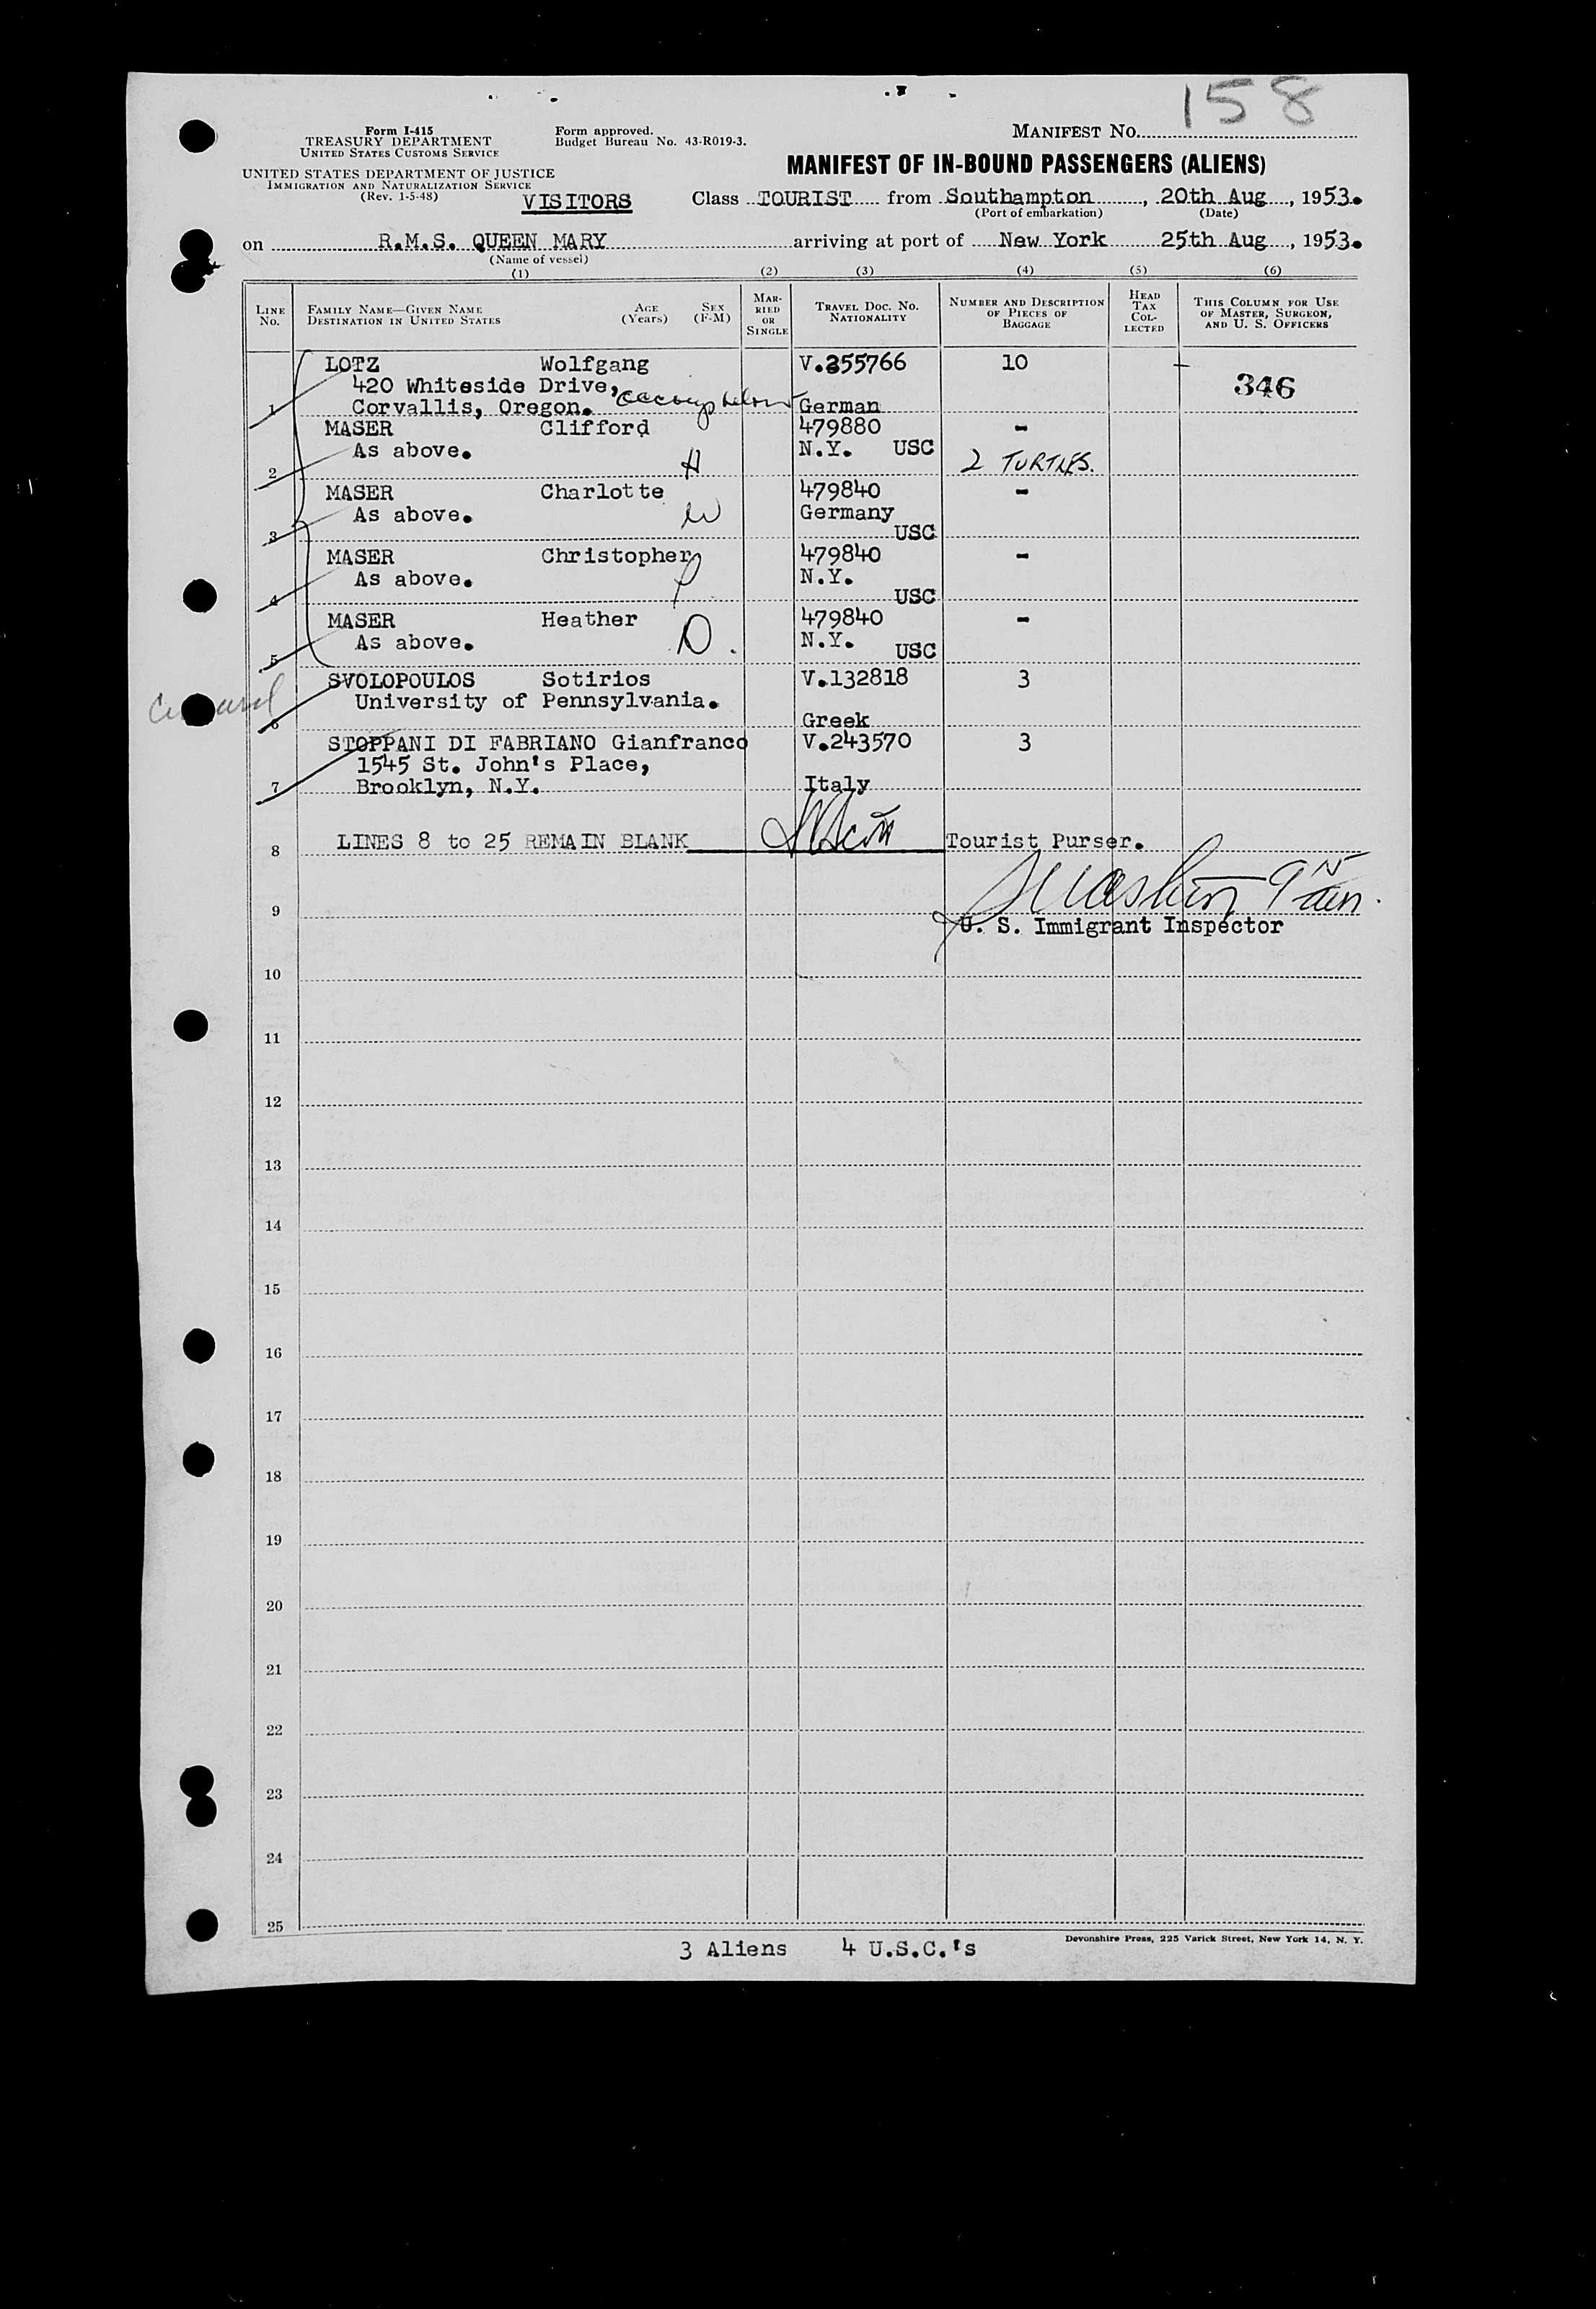 158
Form I-415
TREASURY DEPARTMENT
UNITED STATES CUSTOMS SERVICE
Form approved.
Budget Bureau No. 43-R019-3.
MANIFEST No.
UNITED STATES DEPARTMENT OF JUSTICE
IMMIGRATION AND NATURALIZATION SERVICE
(Rev. 1-5-48)
VISITORS
MANIFEST OF IN-BOUND PASSENGERS (ALIENS)
Class TOURIST from Southampton, 20th Aug, 1953.
(Port of embarkation) (Date)
on R.M.S. QUEEN MARY arriving at port of New York 25th Aug, 1953.
(Name of vessel)
(1) (2) (3) (4) (5) (6)
LINE No.
FAMILY NAME—GIVEN NAME
DESTINATION IN UNITED STATES
AGE (Years)
SEX (F-M)
MAR-RIED OR SINGLE
TRAVEL DOC. NO. NATIONALITY
NUMBER AND DESCRIPTION OF PIECES OF BAGGAGE
HEAD TAX COL-LECTED
THIS COLUMN FOR USE OF MASTER, SURGEON, AND U. S. OFFICERS
LOTZ Wolfgang V.255766 10
420 Whiteside Drive, 346
1 Corvallis, Oregon. German
MASER Clifford 479880 -
As above. H N.Y. USC 2 TURTLES.
2
MASER Charlotte 479840 -
As above. W Germany
3 USC
MASER Christopher 479840 -
As above. N.Y.
4 USC
MASER Heather 479840 -
As above. D. N.Y.
5 USC
SVOLOPOULOS Sotirios V.132818 3
University of Pennsylvania.
6 Greek
STOPPANI DI FABRIANO Gianfranco V.243570 3
1545 St. John's Place,
7 Brooklyn, N.Y. Italy
8 LINES 8 to 25 REMAIN BLANK Tourist Purser.
9
U. S. Immigrant Inspector
10
11
12
13
14
15
16
17
18
19
20
21
22
23
24
25
3 Aliens 4 U.S.C.'s
Devonshire Press, 225 Varick Street, New York 14, N. Y.